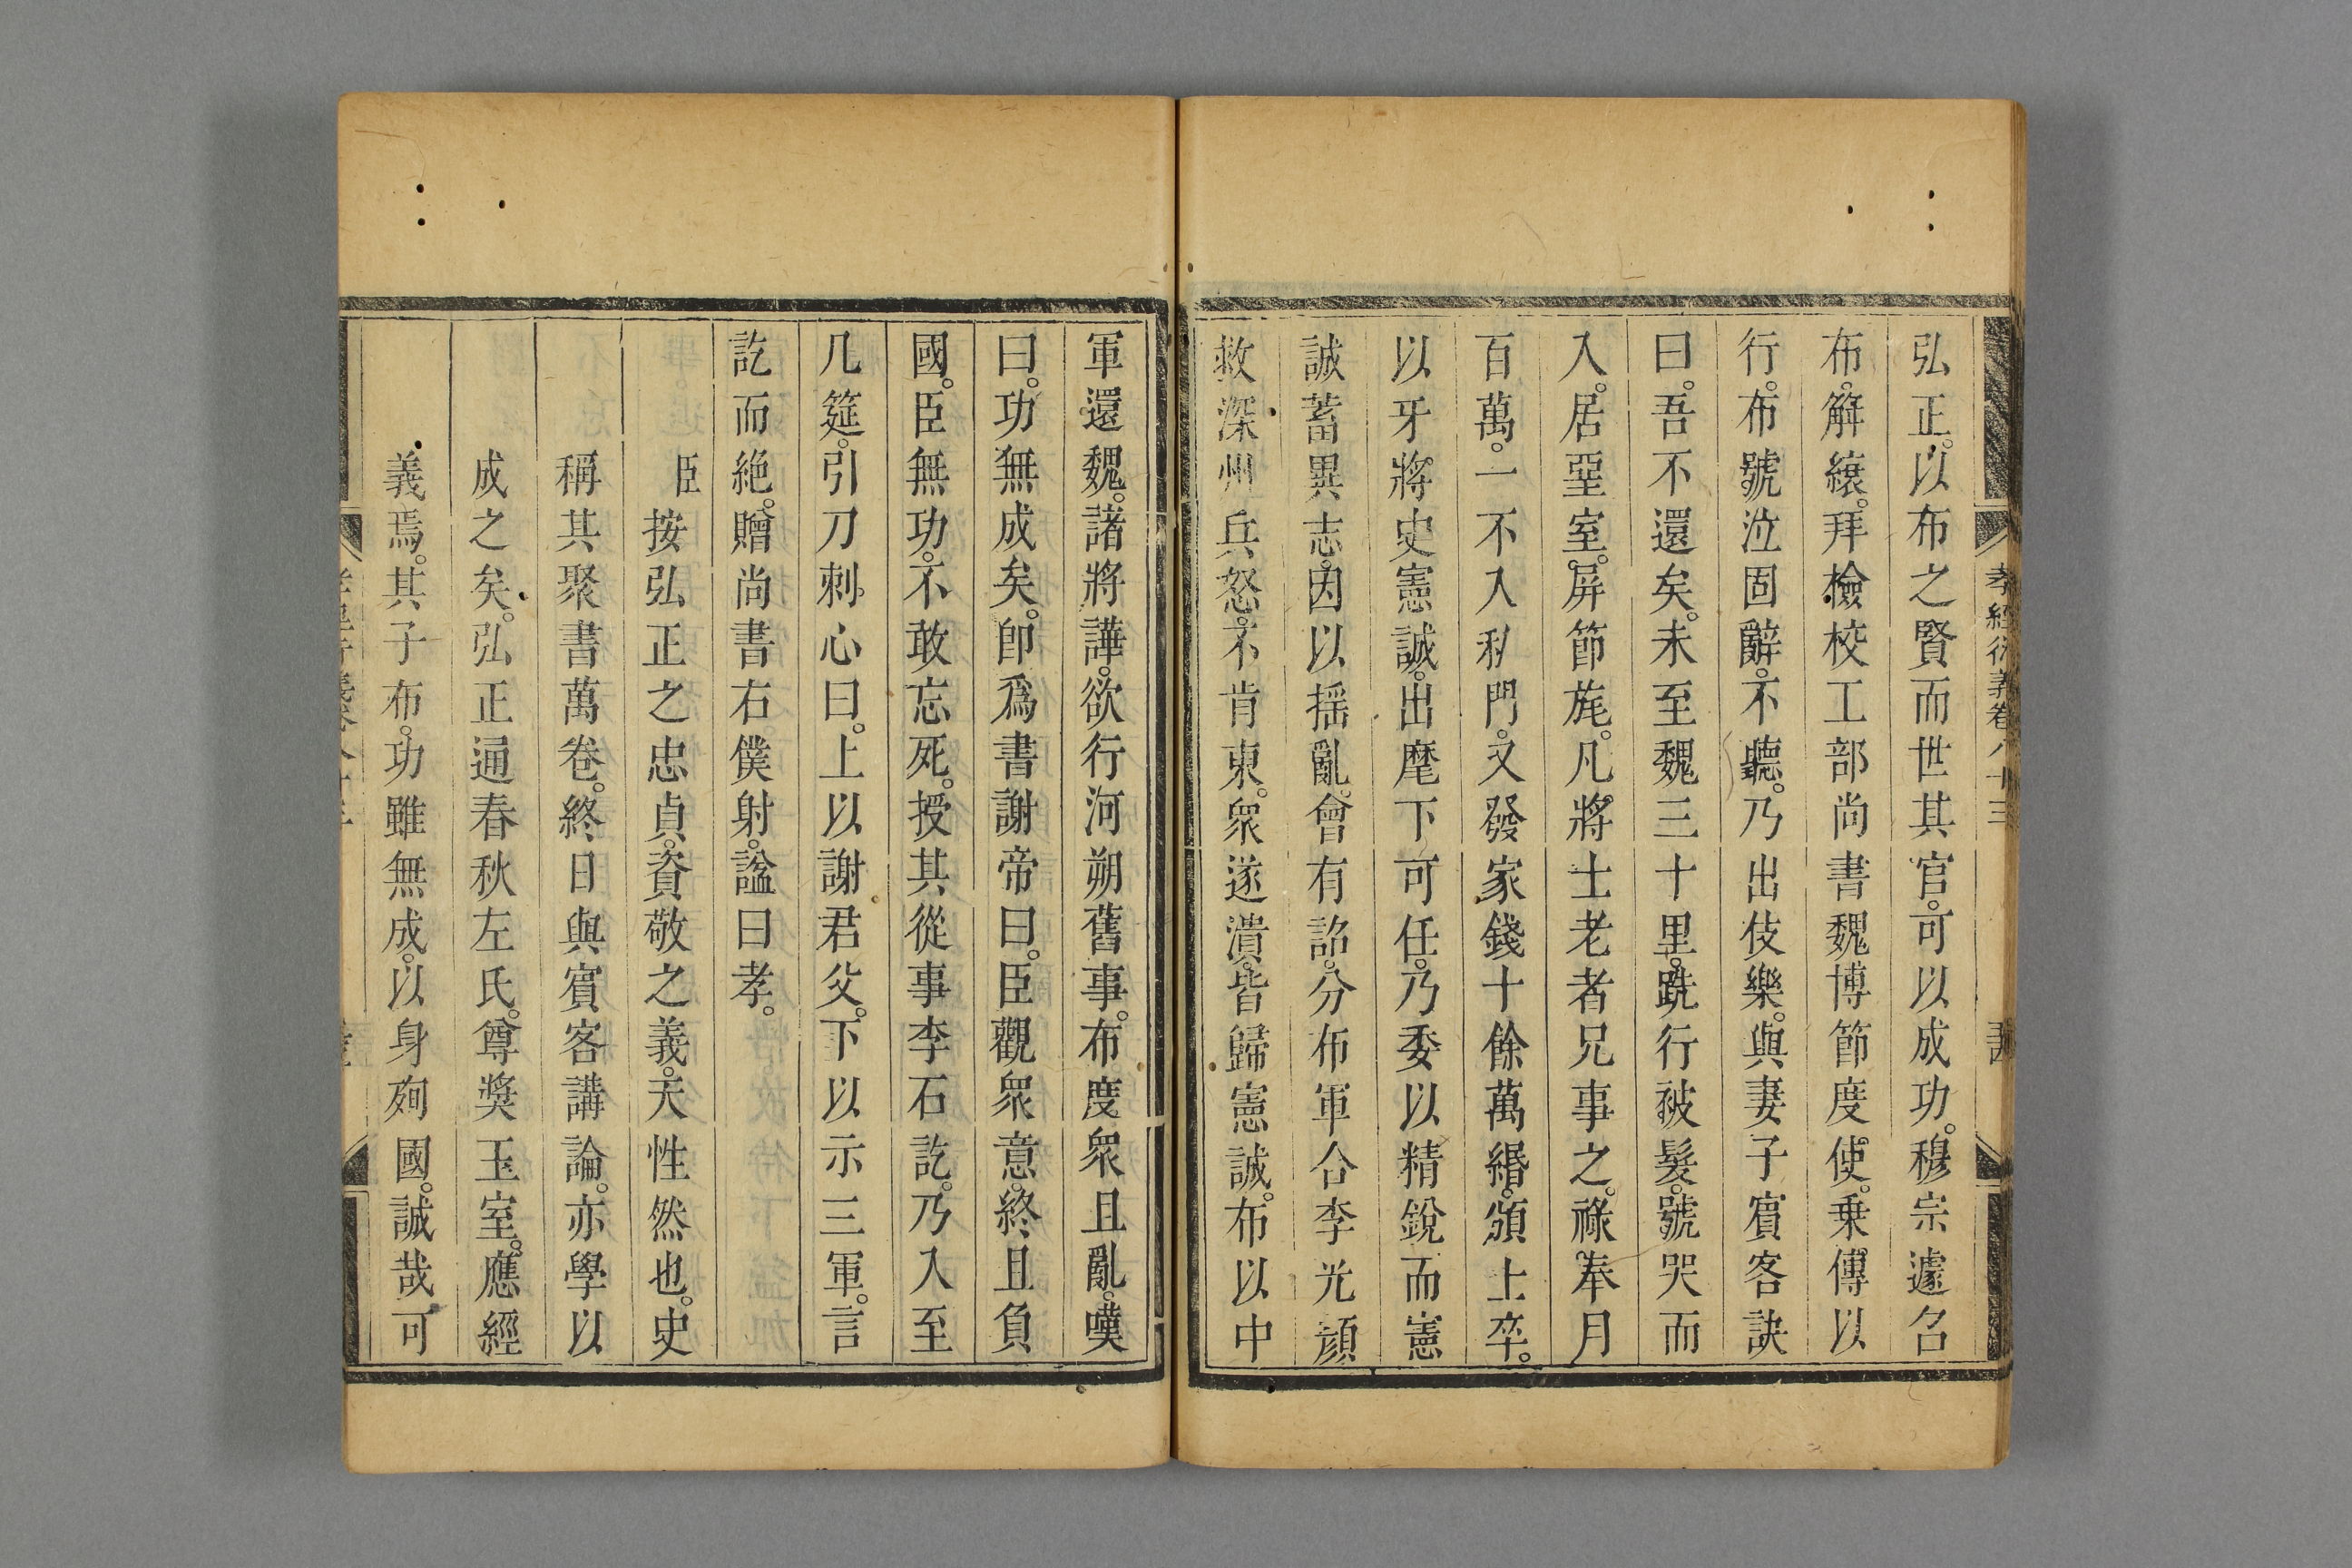 孝經衍義卷八十三
弘正。以布之賢而世其官。可以成功。穆宗遽召
布。觧縗。拜檢校工部尚書魏博節度使。乗傳以
行。布號泣固辭。不聽。乃出伎樂。與妻子賔客訣
曰。吾不還矣。未至魏三十里。跣行被髮。號哭而
入。居堊室。屏節旄。凡將士老者兄事之。祿奉月
百萬。一不入私門。又發家錢十餘萬緡。頒士卒。
以牙將史憲誠。出麾下可任。乃委以精銳而憲
誠蓄異志。因以揺亂。會有詔。分布軍合李光顔
救深州兵怒。不肯東。衆遂潰。皆歸憲誠。布以中
軍還魏。諸將譁。欲行河朔舊事。布度衆且亂。嘆
曰。功無成矣。卽爲書謝帝曰。臣觀衆意。終且負
國。臣無功。不敢忘死。授其從事李石訖。乃入至
几筵。引刀刺心曰。上以謝君父。下以示三軍。言
訖而絶。贈尚書右僕射。謚曰孝。
臣按弘正之忠貞。資敬之義。天性然也。史
稱其聚書萬卷。終日與賔客講論。亦學以
成之矣。弘正通春秋左氏。尊奬王室。應經
義焉。其子布。功雖無成。以身殉國。誠哉可